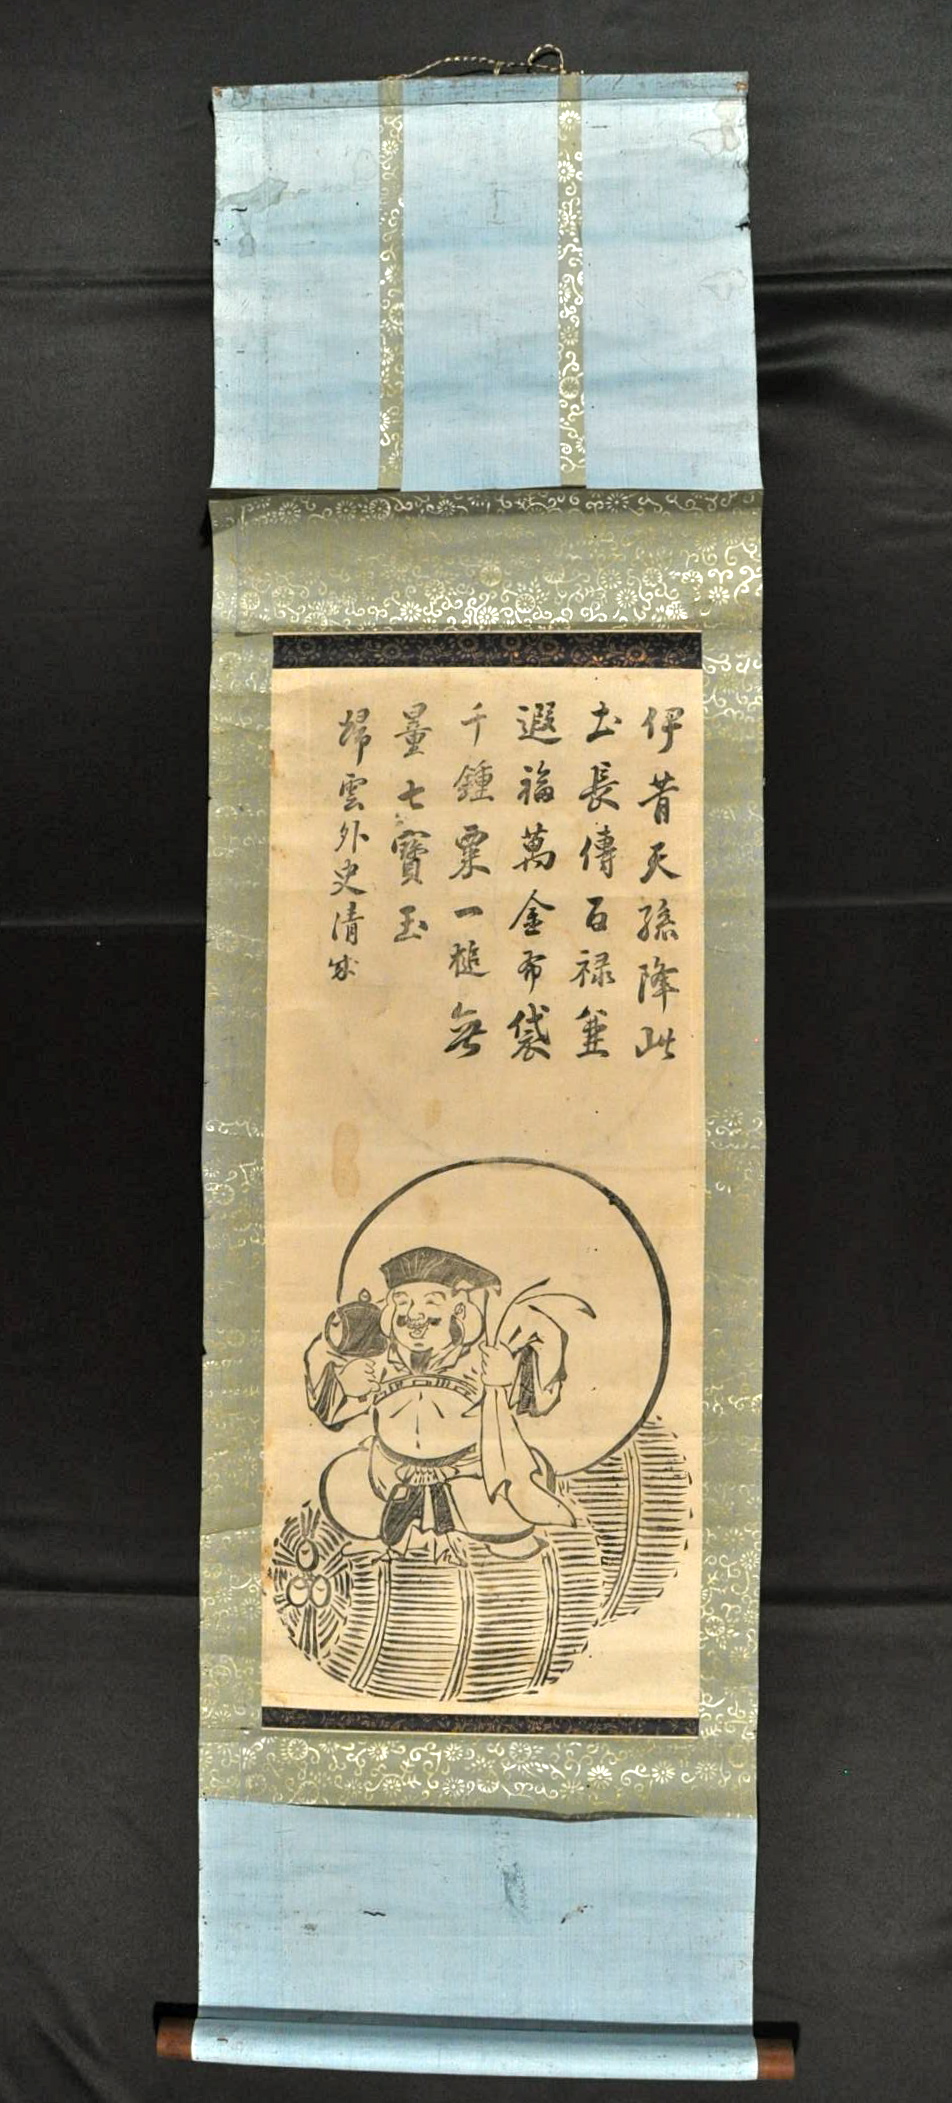 伊昔天孫降此
土長傳百祿並
遐福萬金布袋
千鍾粟一槌無
量七寶玉
歸雲外史清